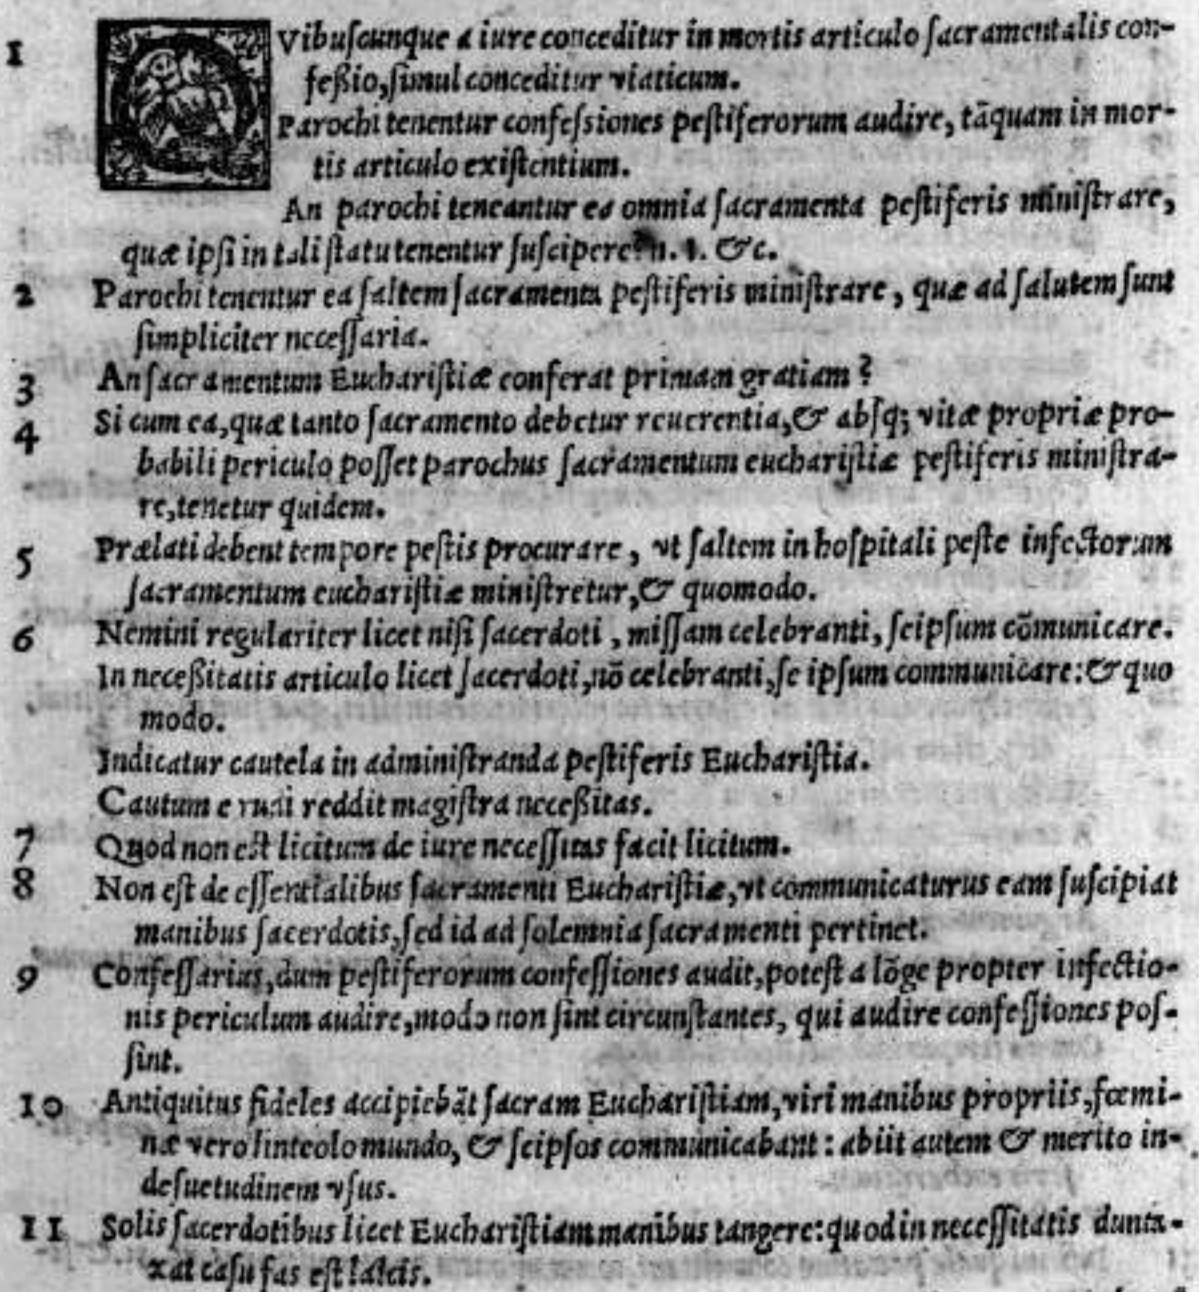 1 QVibuſcunque a iure conceditur in mortis articulo ſacramentalis con-
feßio, ſimul conceditur viaticum.
Parochi tenentur confeſsiones peſtiferorum audire, tāquam in mor-
tis articulo exiſtentium.
An parochi teneantur ea omnia ſacramenta peſtiferis miniſtrare,
quæ ipſi in tali ſtatu tenentur ſuſcipere? n. 1. &c.
2 Parochi tenentur ea ſaltem ſacramenta peſtiferis miniſtrare, quæ ad ſalutem ſunt
ſimpliciter neceſſaria.
3 An ſacramentum Euchariſtiæ conferat primam gratiam?
4 Si cum ea, quæ tanto ſacramento debetur reuerentia, & abſq; vitæ propriæ pro-
babili periculo poſſet parochus ſacramentum euchariſtiæ peſtiferis miniſtra-
re, tenetur quidem.
5 Prælati debent tempore peſtis procurare, vt ſaltem in hoſpitali peſte infectorum
ſacramentum euchariſtiæ miniſtretur, & quomodo.
6 Nemini regulariter licet niſi ſacerdoti, miſſam celebranti, ſeipſum cōmunicare.
In neceßitatis articulo licet ſacerdoti, nō celebranti, ſe ipſum communicare: & quo
modo.
Indicatur cautela in adminiſtranda peſtiferis Euchariſtia.
Cautum e rudi reddit magiſtra neceßitas.
7 Quod non eſt licitum de iure neceſſitas facit licitum.
8 Non eſt de eſſentialibus ſacramenti Euchariſtiæ, vt communicaturus eam ſuſcipiat
manibus ſacerdotis, ſed id ad ſolemnia ſacramenti pertinet.
9 Confeſſarius, dum peſtiferorum confeſſiones audit, poteſt a lōge propter infectio-
nis periculum audire, modo non ſint circunſtantes, qui audire confeſſiones poſ-
ſint.
10 Antiquitus fideles accipiebāt ſacram Euchariſtiam, viri manibus propriis, fœmi-
næ vero linteolo mundo, & ſeipſos communicabant: abiit autem & merito in
deſuetudinem vſus.
11 Solis ſacerdotibus licet Euchariſtiam manibus tangere: quod in neceſſitatis dunta-
xat caſu fas eſt laicis.